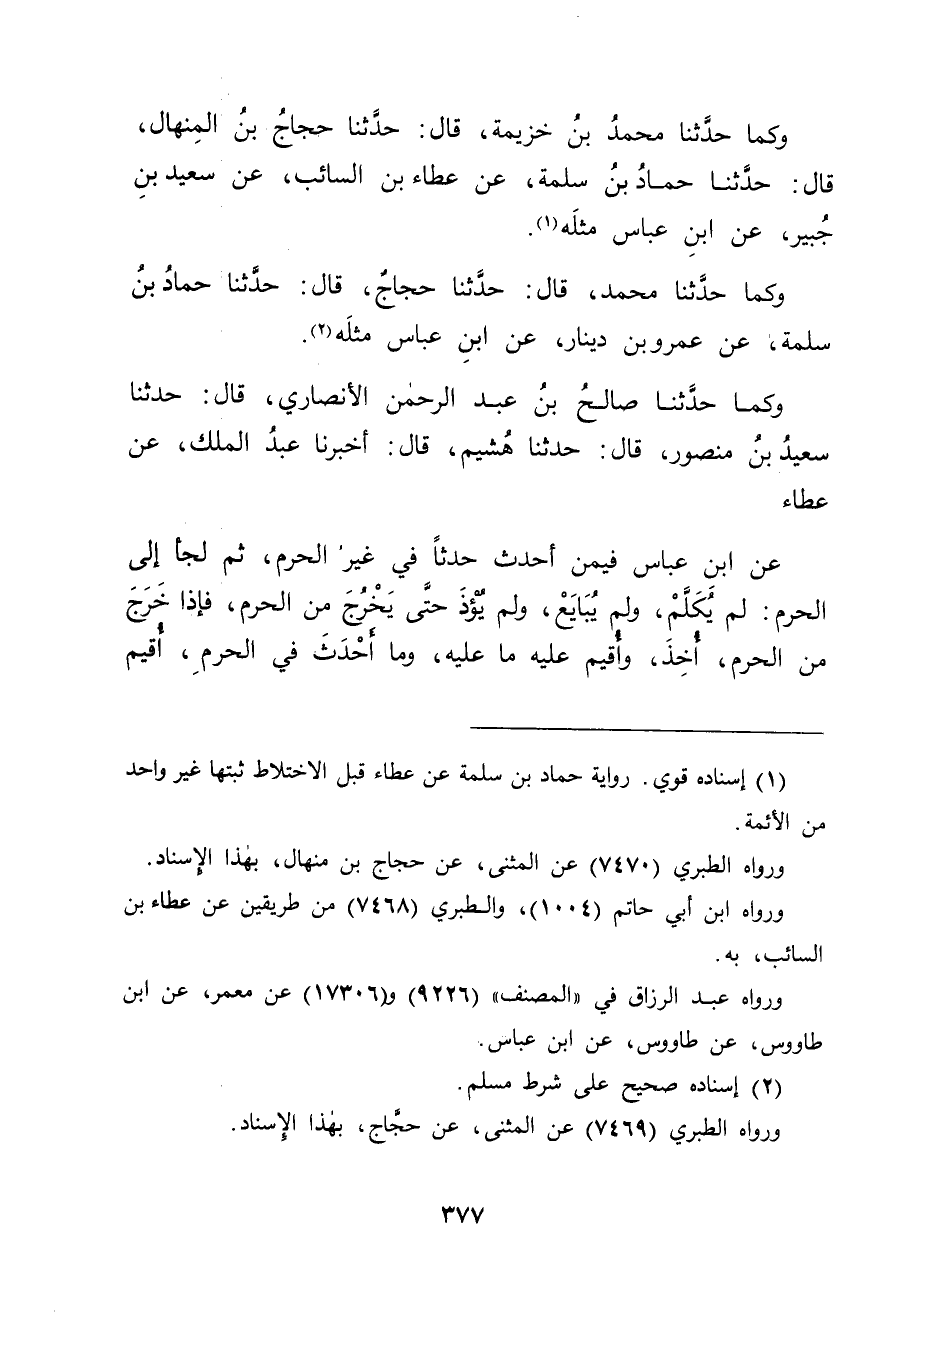 وكما حدَّثنا محمدُ بنُ خزيمة، قال: حدَّثنا حجاجُ بنُ المِنهال،
قال: حدَّثنـا حمـادُ بنُ سلمة، عن عطاء بن السائب، عن سعيد بنِ
جُبير، عن ابنِ عباسٍ مثلَه(١).
وكما حدَّثنا محمد، قال: حدَّثنا حجاجٌ، قال: حدَّثنا حمادُ بنُ
سلمة، عن عمرو بن دينار، عن ابنِ عباس مثلَه(٢).
وكمـا حدَّثنـا صالـحُ بنُ عبـد الرحمٰن الأنصاري، قال: حدثنا
سعيدُ بنُ منصور، قال: حدثنا هُشيم، قال: أخبرنا عبدُ الملك، عن
عطاء
عن ابن عباس فيمن أحدث حدثاً في غير الحرم، ثم لجأ إلى
الحرم: لم يُكَلَّمْ، ولم يُبَايَعْ، ولم يُؤْذَ حتَّى يَخْرُجَ من الحرم، فإذا خَرَجَ
من الحرم، أُخِذَ، وأُقيم عليه ما عليه، وما أَحْدَثَ في الحرمِ، أُقيم
(١) إسناده قوي. رواية حماد بن سلمة عن عطاء قبل الاختلاط ثبتها غير واحد
من الأئمة.
ورواه الطبري (٧٤٧٠) عن المثنى، عن حجاج بن منهال، بهٰذا الإِسناد.
ورواه ابن أبي حاتم (١٠٠٤)، والـطبري (٧٤٦٨) من طريقين عن عطاء بن
السائب، به.
ورواه عبـد الرزاق في «المصنف» (٩٢٢٦) و(١٧٣٠٦) عن معمر، عن ابن
طاووس، عن طاووس، عن ابن عباس.
(٢) إسناده صحيح على شرط مسلم.
ورواه الطبري (٧٤٦٩) عن المثنى، عن حجَّاج، بهٰذا الإِسناد.
٣٧٧